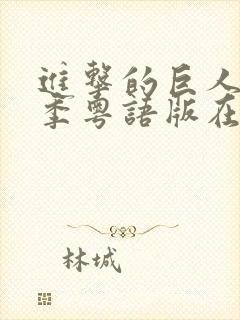 進擊的巨人
季粵語版在
林城